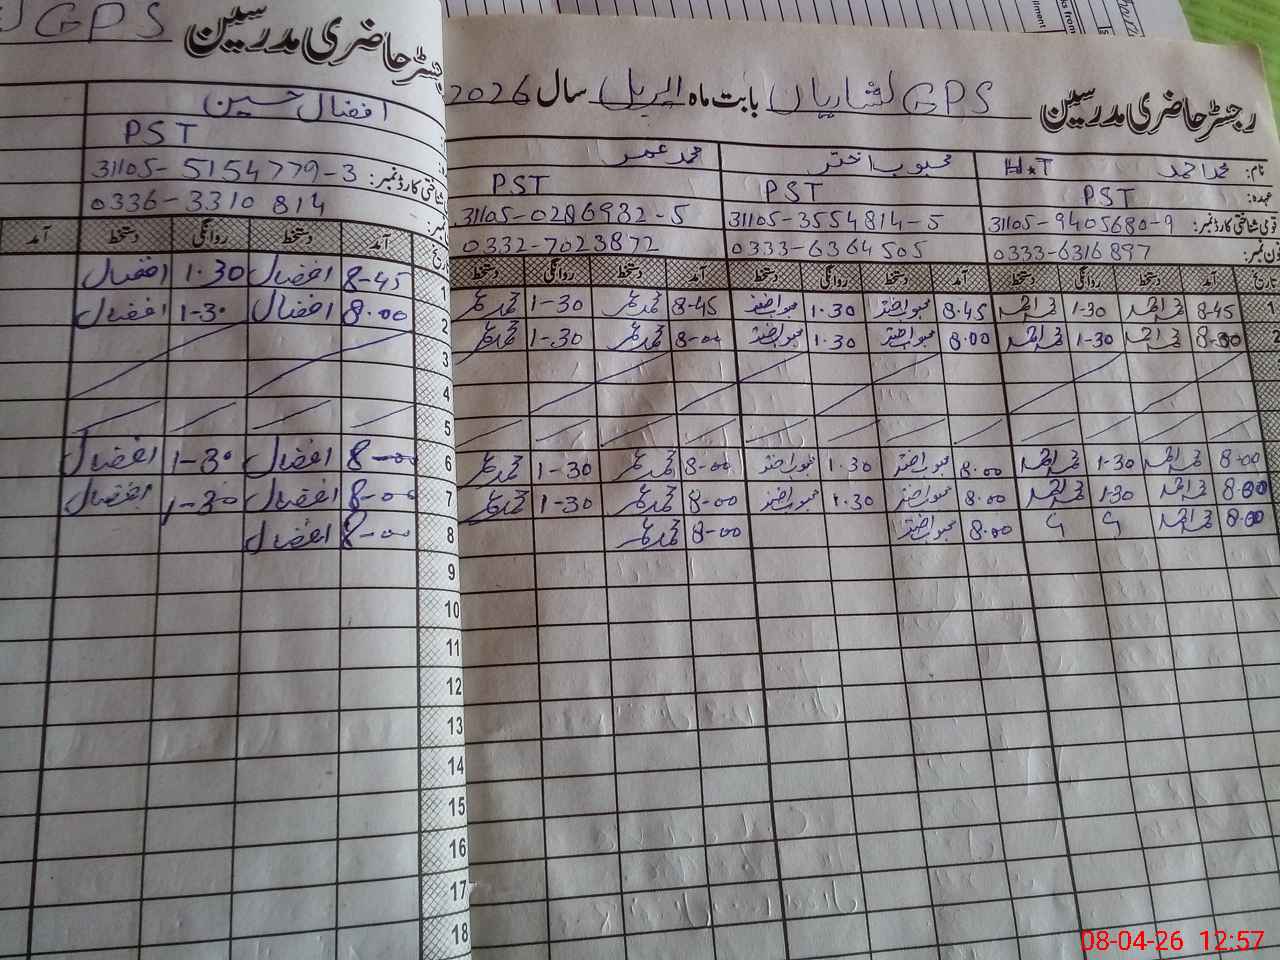 رجسٹر حاضری مدرسین GPS لشاریاں بابت ماہ اپریل سال 2026
نام: محمد احمد H.T محبوب اختر محمد عمر
عہدہ: PST PST PST
قومی شناختی کارڈ نمبر: 31105-9405680-9 31105-3554814-5 31105-0286932-5
فون نمبر: 0333-6316897 0333-6364505 0332-7023872
تاریخ آمد دستخط روانگی دستخط آمد دستخط روانگی دستخط آمد دستخط روانگی دستخط
1 8-45 محمد احمد 1-30 محمد احمد 8.45 محبوب اختر 1.30 محبوب اختر 8-45 محمد عمر 1-30 محمد عمر
2 8-00 محمد احمد 1-30 محمد احمد 8.00 محبوب اختر 1.30 محبوب اختر 8-00 محمد عمر 1-30 محمد عمر
8-00 محمد احمد 1-30 محمد احمد 8.00 محبوب اختر 1.30 محبوب اختر 8-00 محمد عمر 1-30 محمد عمر
8-00 محمد احمد 1-30 محمد احمد 8.00 محبوب اختر 1.30 محبوب اختر 8-00 محمد عمر 1-30 محمد عمر
8.00 محمد احمد 8.00 محبوب اختر 8-00 محمد عمر
رجسٹر حاضری مدرسین GPS
افضال حسین
PST
شناختی کارڈ نمبر: 31105-5154779-3
0336-3310814
تاریخ آمد دستخط روانگی دستخط آمد
1 8-45 افضال 1.30 افضال
2 8.00 افضال 1-30 افضال
3
4
5
6 8-00 افضال 1-30 افضال
7 8-00 افضال 1-30 افضال
8 8-00 افضال
9
10
11
12
13
14
15
16
17
18
08-04-26 12:57